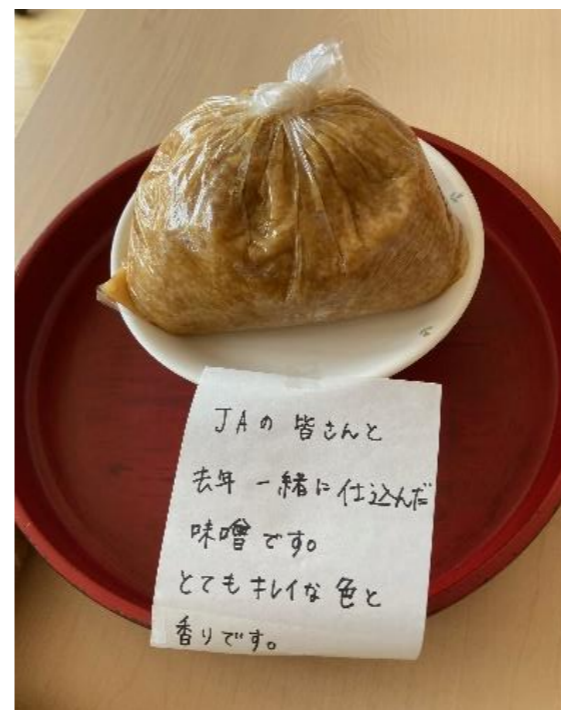 JAの皆さんと
去年一緒に仕込んだ
味噌です。
とてもキレイな色と
香りです。